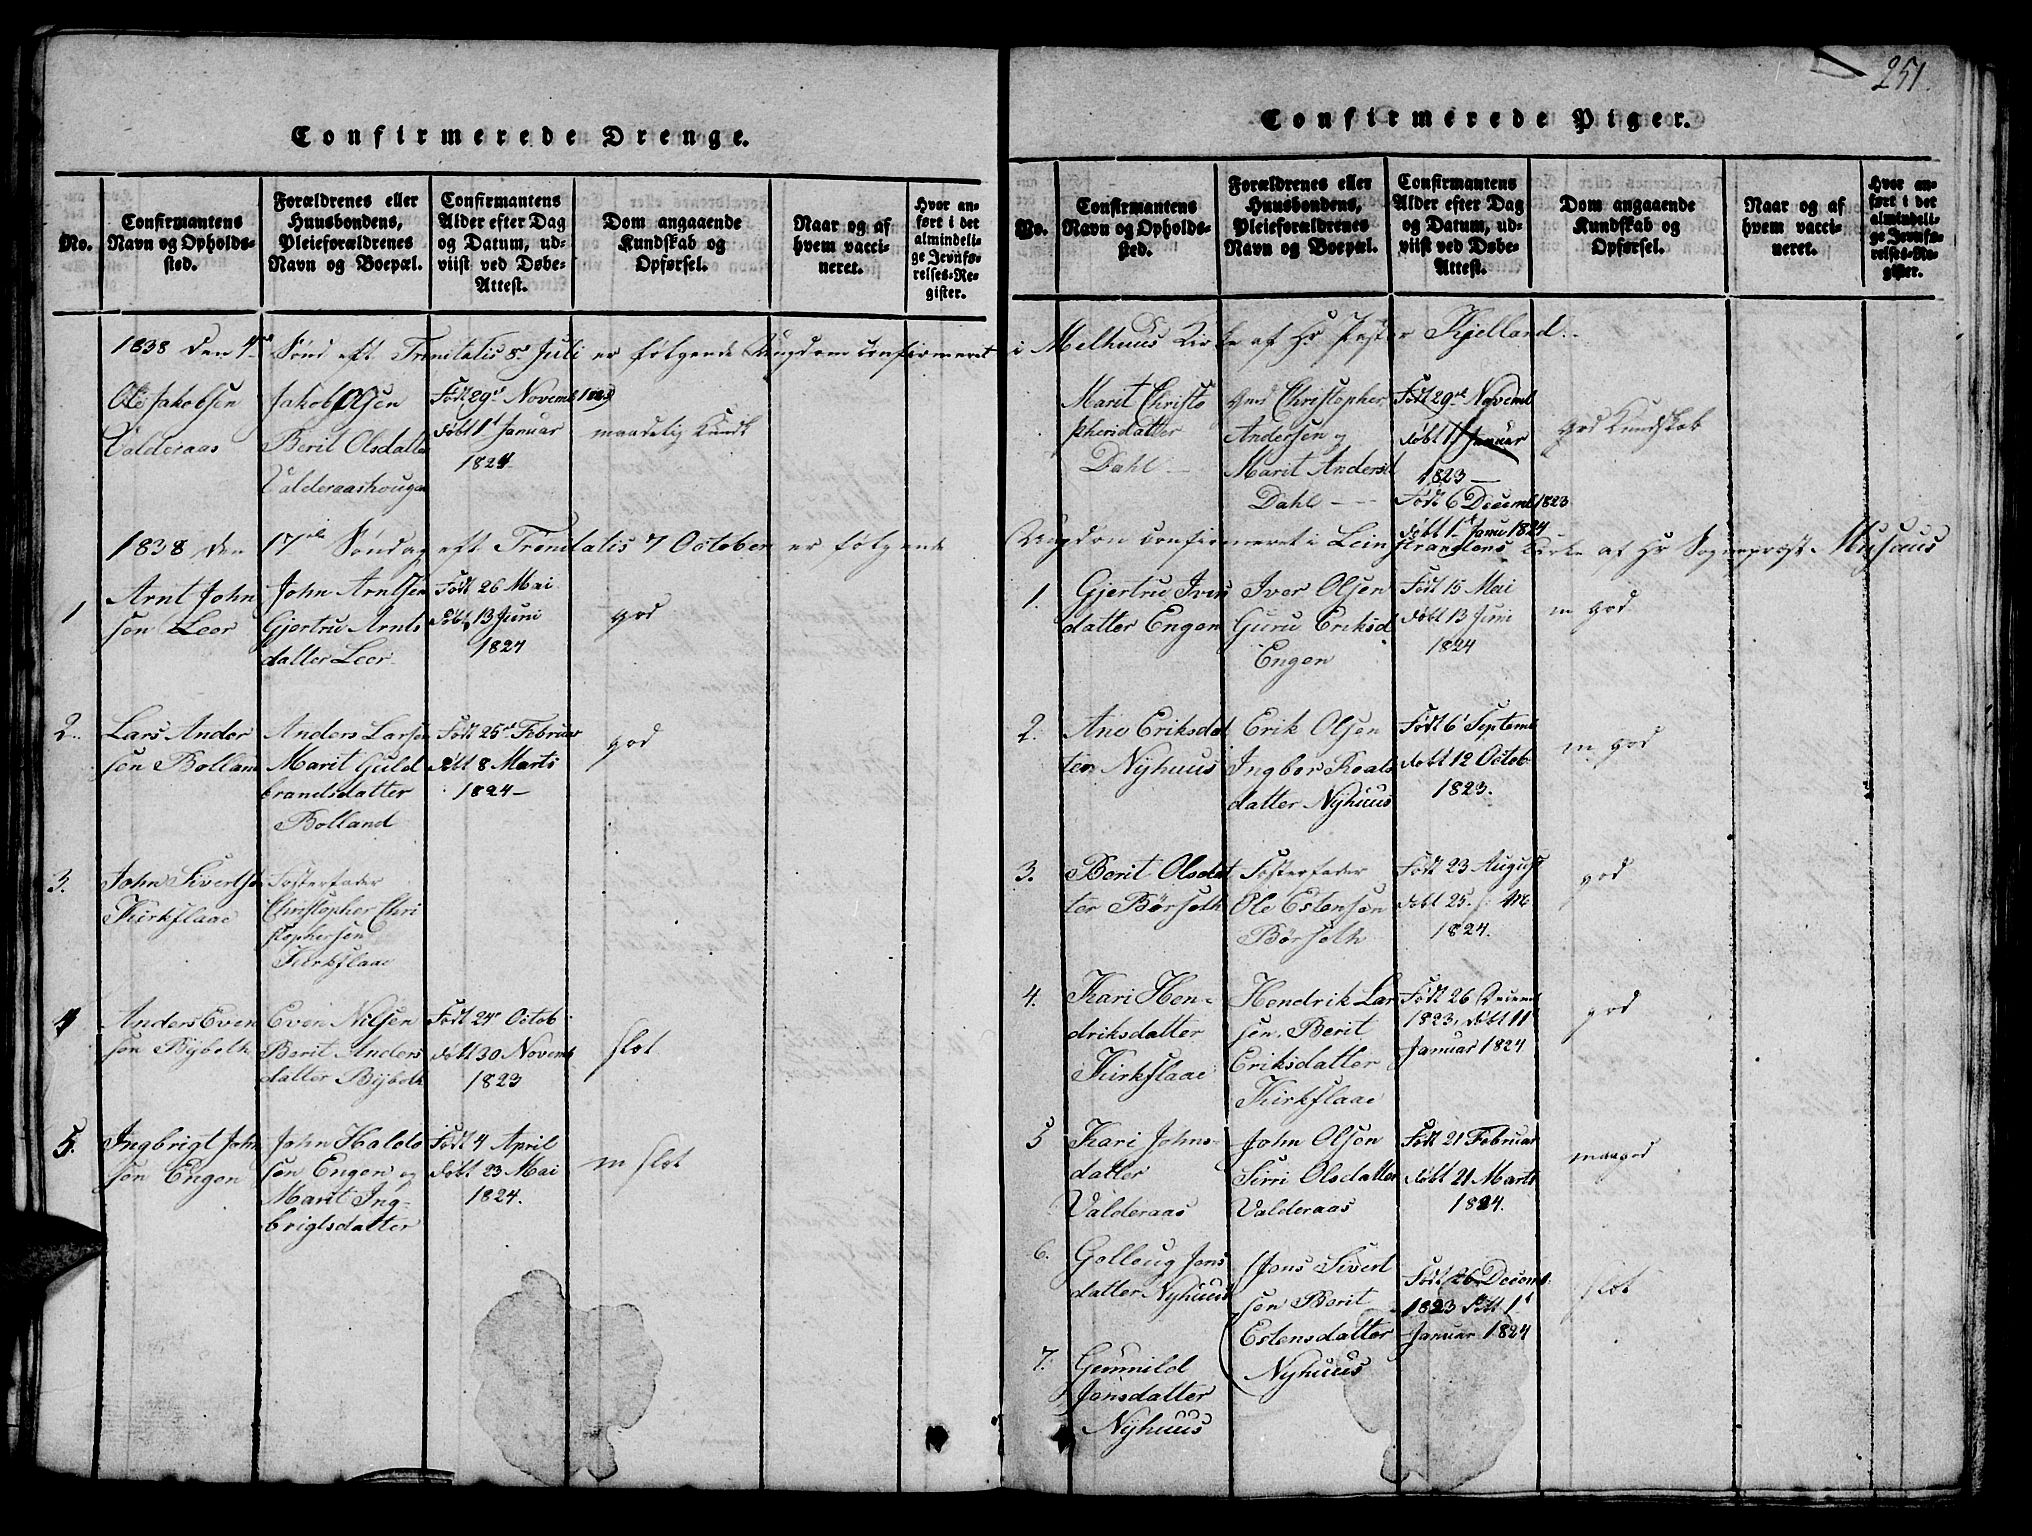 251.
Confirmerede Drenge.
No.
Confirmantens
Navn og Opholds-
sted.
Forældrenes eller
Huusbondens,
Pleieforældrenes
Navn og Boepæl.
Confirmantens
Alder efter Dag
og Datum, ud-
viist ved Døbe-
Attest.
Dom angaaende
Kundskab og
Opførsel.
Naar og af
hvem vacci-
neret.
Hvor an-
ført i det
almindeli-
ge Jevnfø-
relses-Re-
gister.
1838 den 4de Sønd eft Trinitatis 8de Juli er følgende Ungdom confirmeret
Ole Jakobsen
Valderaas
Jakob Olsen
Berit Olsdatter
Valderaashougen
Født 29de Novemb 1823
døbt 1t Januar
1824
maadelig Kundt
1838 den 17de Søndag eft Trinitatis 7 October er følgende
1
Arnt John
sen Leer
John Arntsen
Gjertru Arnts
datter Leer
Født 26 Mai
døbt 13 Juni
1824
god
2.
Lars Ander
sen Bolland
Anders Larsen
Marit Guld
brandsdatter
Bolland
Født 25de Februar
døbt 8 Marts
1824
god
3.
John Sivertsen
Kirkflaae
Fosterfader
Christopher Chri
stophersen
Kirkflaae
4
Anders Even
sen Bÿbolt
Even Nilsen
Berit Anders
datter Bÿbolt
Født 24de Octob
døbt 30 Novemb
1823
slet
5.
Ingbrigt John
sen Engen
John Haldo
sen Engen og
Marit Ing-
brigtsdatter
Født 4 April
døbt 23 Mai
1824.
m slet
Confirmerede Piger.
No.
Confirmantens
Navn og Opholds-
sted.
Forældrenes eller
Huusbondens,
Pleieforældrenes
Navn og Boepæl.
Confirmantens
Alder efter Dag
og Datum, ud-
viist ved Døbe-
Attest.
Dom angaaende
Kundskab og
Opførsel.
Naar og af
hvem vacci-
neret.
Hvor an-
ført i det
almindeli-
ge Jevnfø-
relses-Re-
gister.
i Melhuus Kirke af Hr Pastor Kjelland.
Marit Christo
phersdatter
Dahl
Christopher
Andersen og
Marit Andersd
Dahl
Født 29de Novemb
døbt 1t Januar
1823
Født 6 Decemb 1823
døbt 1de Janu 1824
god Kundskab
Ungdom confirmeret i Leinstrandens Kirke af Hr Sogneprest Musæus
1.
Gjertru Ivers
datter Engen
Iver Olsen
Guru Eriksd
Engen
Født 15 Mai
døbt 13 Juni
1824
m god
2.
Ane Eriksdat
ter Nÿhuus
Erik Olsen
Ingbor Roals
datter Nÿhuus
Født 6t Septemb
døbt 12 Octob
1823.
m god
3.
Berit Olsdat
ter Børsolh
Fosterfader
Ole Estensen
Børsolh
Født 23 August
døbt 25. s. M
1824.
god
4.
Kari Hen-
driksdatter
Kirkflaae
Hendrik Lar
sen. Berit
Eriksdatter
Kirkflaae
Født 26 Decemb
1823, døbt 11
Januar 1824
god
5
Kari Johns-
datter
Valderaas
John Olsen
Sirri Olsdatter
Valderaas
Født 21 Februar
døbt 21 Marts
1824.
maagod
6.
Golloug Jons
datter Nÿhuus
Jons Sivert
sen Berit
Estensdatter
Nÿhuus
Født 26 Decemb.
1823 døbt 1t
Januar 1824
slet
7.
Gunnild
Jonsdatter
Nÿhuus